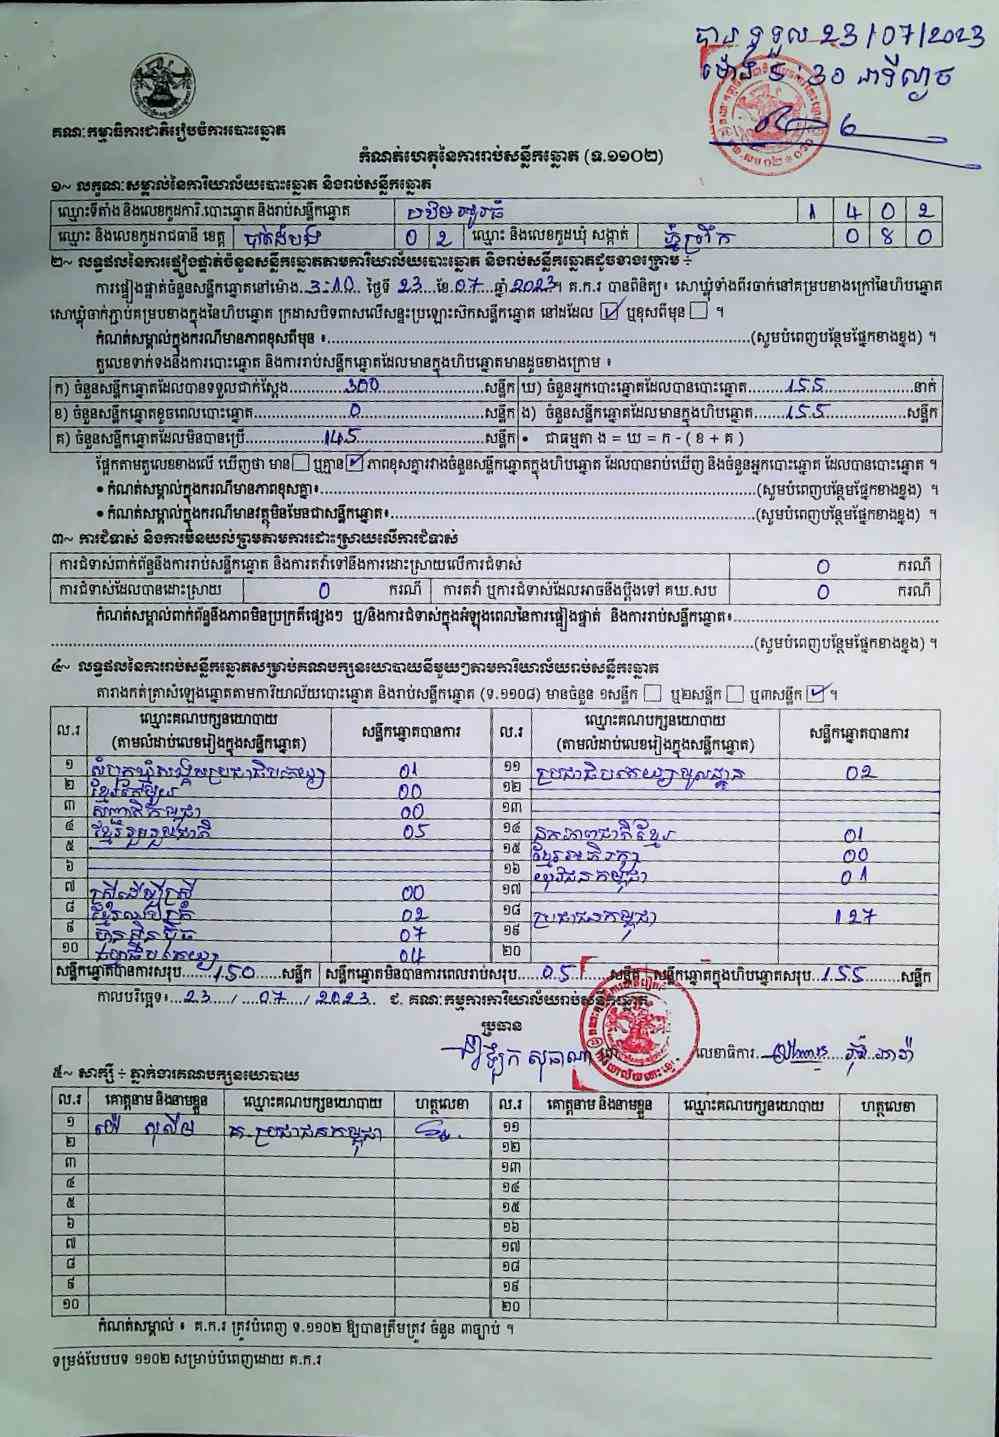 បានទទួល 23/07/2023
ម៉ោង 5:30 នាទីល្ងាច
គណៈកម្មាធិការជាតិរៀបចំការបោះឆ្នោត
កំណត់ហេតុនៃការរាប់សន្លឹកឆ្នោត (ទ.១១០២)
១~ លក្ខណៈសម្គាល់នៃការិយាល័យបោះឆ្នោត និងរាប់សន្លឹកឆ្នោត
ឈ្មោះទីតាំង និងលេខកូដការិ.បោះឆ្នោត និងរាប់សន្លឹកឆ្នោត 1 4 0 2
ឈ្មោះ និងលេខកូដរាជធានី ខេត្ត បាត់ដំបង 0 2 ឈ្មោះ និងលេខកូដឃុំ សង្កាត់ 0 8 0
២~ លទ្ធផលនៃការផ្ទៀងផ្ទាត់ចំនួនសន្លឹកឆ្នោតតាមការិយាល័យបោះឆ្នោត និងរាប់សន្លឹកឆ្នោតដូចខាងក្រោម ÷
ការផ្ទៀងផ្ទាត់ចំនួនសន្លឹកឆ្នោតនៅម៉ោង..3:10.. ថ្ងៃទី 23..ខែ.07..ឆ្នាំ 2023។ គ.ក.រ បានពិនិត្យ៖ សោឃ្លុំទាំងពីរចាក់នៅគម្របខាងក្រៅនៃហិបឆ្នោត
សោឃ្លុំចាក់ភ្ជាប់គម្របខាងក្នុងនៃហិបឆ្នោត ក្រដាសបិទពាសលើសន្ទះប្រឡោះស៊កសន្លឹកឆ្នោត នៅដដែល ☑ ឬខុសពីមុន ☐ ។
កំណត់សម្គាល់ក្នុងករណីមានភាពខុសពីមុន ៖..........(សូមបំពេញបន្ថែមផ្នែកខាងខ្នង) ។
តួលេខទាក់ទងនឹងការបោះឆ្នោត និងការរាប់សន្លឹកឆ្នោតដែលមានក្នុងហិបឆ្នោតមានដូចខាងក្រោម ៖
ក) ចំនួនសន្លឹកឆ្នោតដែលបានទទួលជាក់ស្តែង.....300.....សន្លឹក ឃ) ចំនួនអ្នកបោះឆ្នោតដែលបានបោះឆ្នោត.....155.....នាក់
ខ) ចំនួនសន្លឹកឆ្នោតខូចពេលបោះឆ្នោត.....0.....សន្លឹក ង) ចំនួនសន្លឹកឆ្នោតដែលមានក្នុងហិបឆ្នោត.....155.....សន្លឹក
គ) ចំនួនសន្លឹកឆ្នោតដែលមិនបានប្រើ.....145.....សន្លឹក • ជាធម្មតា ង = ឃ = ក - ( ខ + គ )
ផ្អែកតាមតួលេខខាងលើ ឃើញថា មាន ☐ ឬគ្មាន ☑ ភាពខុសគ្នារវាងចំនួនសន្លឹកឆ្នោតក្នុងហិបឆ្នោត ដែលបានរាប់ឃើញ និងចំនួនអ្នកបោះឆ្នោត ដែលបានបោះឆ្នោត ។
• កំណត់សម្គាល់ក្នុងករណីមានភាពខុសគ្នា៖..........(សូមបំពេញបន្ថែមផ្នែកខាងខ្នង) ។
• កំណត់សម្គាល់ក្នុងករណីមានវត្ថុមិនមែនជាសន្លឹកឆ្នោត៖..........(សូមបំពេញបន្ថែមផ្នែកខាងខ្នង) ។
៣~ ការជំទាស់ និងការមិនយល់ព្រមតាមការដោះស្រាយលើការជំទាស់
ការជំទាស់ពាក់ព័ន្ធនឹងការរាប់សន្លឹកឆ្នោត និងការតវ៉ាទៅនឹងការដោះស្រាយលើការជំទាស់ 0 ករណី
ការជំទាស់ដែលបានដោះស្រាយ 0 ករណី ការតវ៉ា ឬការជំទាស់ដែលអាចនឹងប្តឹងទៅ គឃ.សប 0 ករណី
កំណត់សម្គាល់ពាក់ព័ន្ធនឹងភាពមិនប្រក្រតីផ្សេងៗ ឬ/និងការជំទាស់ក្នុងអំឡុងពេលនៃការផ្ទៀងផ្ទាត់ និងការរាប់សន្លឹកឆ្នោត៖..........
..........(សូមបំពេញបន្ថែមផ្នែកខាងខ្នង) ។
៤~ លទ្ធផលនៃការរាប់សន្លឹកឆ្នោតសម្រាប់គណបក្សនយោបាយនីមួយៗតាមការិយាល័យរាប់សន្លឹកឆ្នោត
តារាងកត់ត្រាសំឡេងឆ្នោតតាមការិយាល័យបោះឆ្នោត និងរាប់សន្លឹកឆ្នោត (ទ.១១០៨) មានចំនួន ១សន្លឹក ☐ ឬ២សន្លឹក ☐ ឬ៣សន្លឹក ☑ ។
ល.រ ឈ្មោះគណបក្សនយោបាយ (តាមលំដាប់លេខរៀងក្នុងសន្លឹកឆ្នោត) សន្លឹកឆ្នោតបានការ ល.រ ឈ្មោះគណបក្សនយោបាយ (តាមលំដាប់លេខរៀងក្នុងសន្លឹកឆ្នោត) សន្លឹកឆ្នោតបានការ
១ សំបុកឃ្មុំសង្គមប្រជាធិបតេយ្យ 01 ១១ ប្រជាធិបតេយ្យមូលដ្ឋាន 02
២ ខ្មែរតែមួយ 00 ១២
៣ សញ្ជាតិកម្ពុជា 00 ១៣
៤ ខ្មែររួបរួមជាតិ 05 ១៤ ឯកភាពជាតិខ្មែរ 01
៥ ១៥ ខ្មែរអភិរក្ស 00
៦ ១៦ យុវជនកម្ពុជា 01
៧ ស្ត្រីដើម្បីស្ត្រី 00 ១៧
៨ 02 ១៨ ប្រជាជនកម្ពុជា 127
៩ ហ៊្វុនស៊ិនប៉ិច 07 ១៩
១០ ធម្មាធិបតេយ្យ 04 ២០
សន្លឹកឆ្នោតបានការសរុប.....150.....សន្លឹក សន្លឹកឆ្នោតមិនបានការពេលរាប់សរុប.....05.....សន្លឹក សន្លឹកឆ្នោតក្នុងហិបឆ្នោតសរុប..155.....សន្លឹក
កាលបរិច្ឆេទ៖...23..../....07..../..2023.. ជ. គណៈកម្មការការិយាល័យរាប់សន្លឹកឆ្នោត
ប្រធាន
លេខាធិការ
៥~ សាក្សី ÷ ភ្នាក់ងារគណបក្សនយោបាយ
ល.រ គោត្តនាម និងនាមខ្លួន ឈ្មោះគណបក្សនយោបាយ ហត្ថលេខា ល.រ គោត្តនាម និងនាមខ្លួន ឈ្មោះគណបក្សនយោបាយ ហត្ថលេខា
១ គ.ប្រជាជនកម្ពុជា ១១
២ ១២
៣ ១៣
៤ ១៤
៥ ១៥
៦ ១៦
៧ ១៧
៨ ១៨
៩ ១៩
១០ ២០
កំណត់សម្គាល់ ៖ គ.ក.រ ត្រូវបំពេញ ទ.១១០២ ឱ្យបានត្រឹមត្រូវ ចំនួន ៣ច្បាប់ ។
ទម្រង់បែបបទ ១១០២ សម្រាប់បំពេញដោយ គ.ក.រ